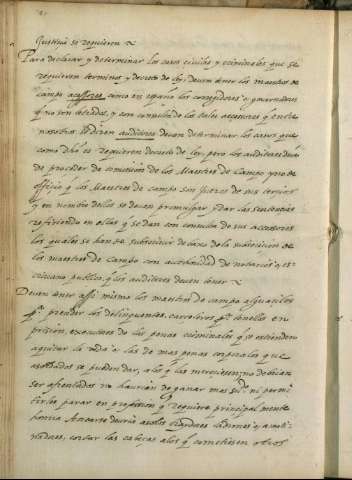 Justicia se requieren
Para declarar y determinar los casos civiles y criminales que se
requieren terminos y decreto de ley, deuen tener los maestros de
campo acessores, como en españa los corregidores o gouernadores
q̃ no son letrados, y con consulta de los tales acessores q̃ entre
nosotros se dizen auditores deuen determinar los casos que
como dho es requieren decreto de ley, pero los auditores deuen
de proceder de comission de los Maestros de Campo y no de
officio q̃ los Maestros de campo son juezes de sus tercios
y en nombre dellos se deuen promulgar y dar las sentencias
refiriendo en ellas q̃ se dan con consulta de sus accessores
los quales se han de subscriuir debaxo de la subscricion de
los maestros de Campo con authoridad de notarios o es-
criuano publico, q̃ los auditores deuen tener
Deuen tener assi mismo los maestros de campo alguaziles
pª prender los delinquentes, carceleros pª tenellos en
prision, executores de las penas criminales q̃ se estienden
a quitar la vida a las de mas penas corporales que
a soldados se pueden dar, a los q̃ las mereciessen, no deberian
ser afrentados no haurian de ganar mas sueldo ni permi-
tirles parar en profession q̃ requiere principalmente
honrra. Açotarse deuria a los ladrones y a
cortar las cabeças a los q̃ cometiesen otros